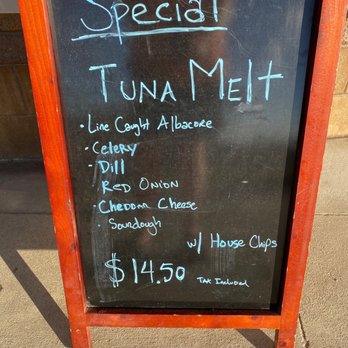 Special
TUNA MELT
• Line Caught Albacore
• Celery
• Dill
Red Onion
• Cheddar Cheese
• Sourdough
w/ House Chips
$14.50 Tax Included